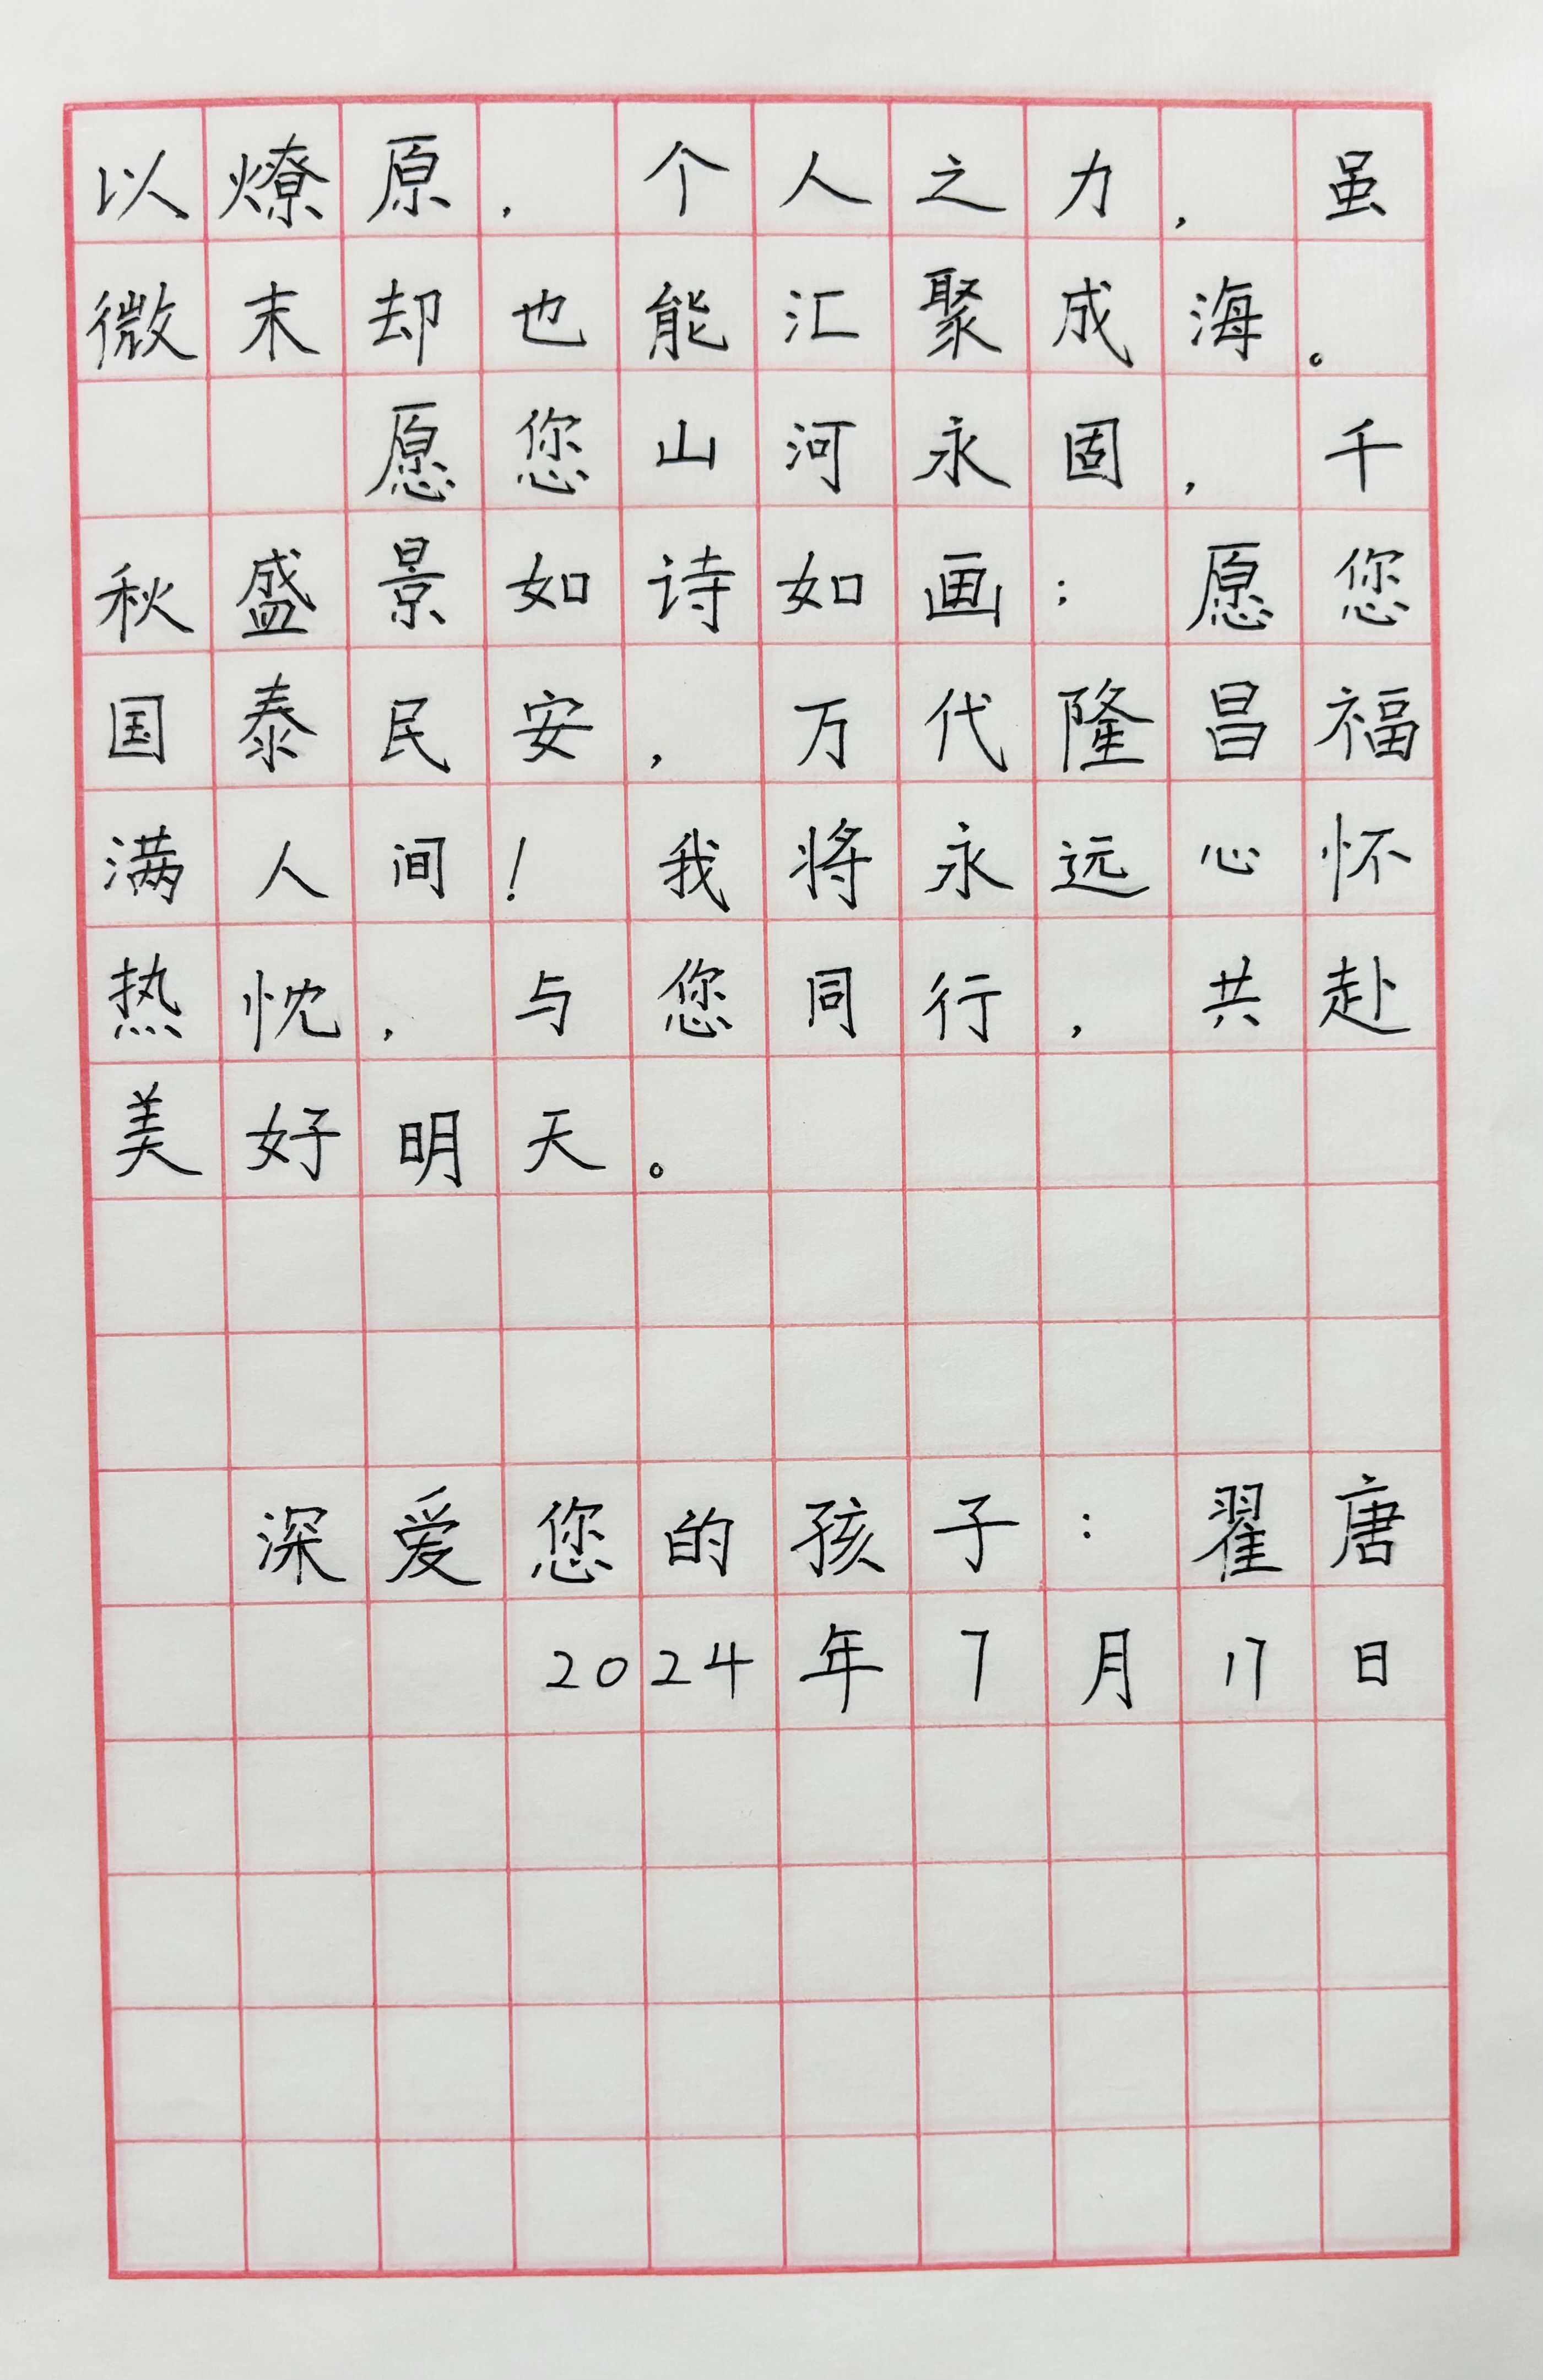 以燎原，个人之力，虽
微末却也能汇聚成海。
愿您山河永固，千
秋盛景如诗如画；愿您
国泰民安，万代隆昌福
满人间！我将永远心怀
热忱，与您同行，共赴
美好明天。
深爱您的孩子：翟唐
2024年7月17日